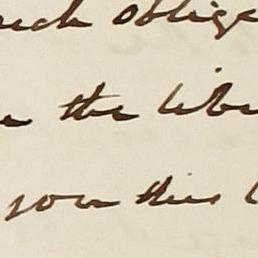 much oblige
the libe
you this